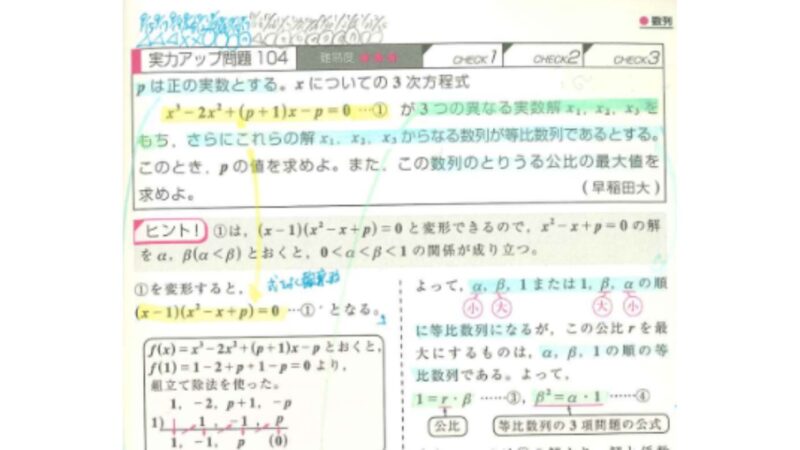 ●数列
実力アップ問題 104 難易度 CHECK1 CHECK2 CHECK3
pは正の実数とする。xについての3次方程式
x³−2x²+(p+1)x−p=0 …① が3つの異なる実数解x₁, x₂, x₃を
もち、さらにこれらの解x₁, x₂, x₃からなる数列が等比数列であるとする。
このとき、pの値を求めよ。また、この数列のとりうる公比の最大値を
求めよ。 (早稲田大)
ヒント! ①は、(x−1)(x²−x+p)=0と変形できるので、x²−x+p=0の解
をα, β(α<β)とおくと、0<α<β<1の関係が成り立つ。
①を変形すると、
(x−1)(x²−x+p)=0 …①´ となる。
f(x)=x³−2x²+(p+1)x−pとおくと、
f(1)=1−2+p+1−p=0より、
組立て除法を使った。
1, −2, p+1, −p
1) 1, −1, p
1, −1, p (0)
よって、α, β, 1または1, β, αの順
小 大 大 小
に等比数列になるが、この公比rを最
大にするものは、α, β, 1の順の等
比数列である。よって、
1=r・β ……③, β²=α・1 ……④
公比 等比数列の3項問題の公式